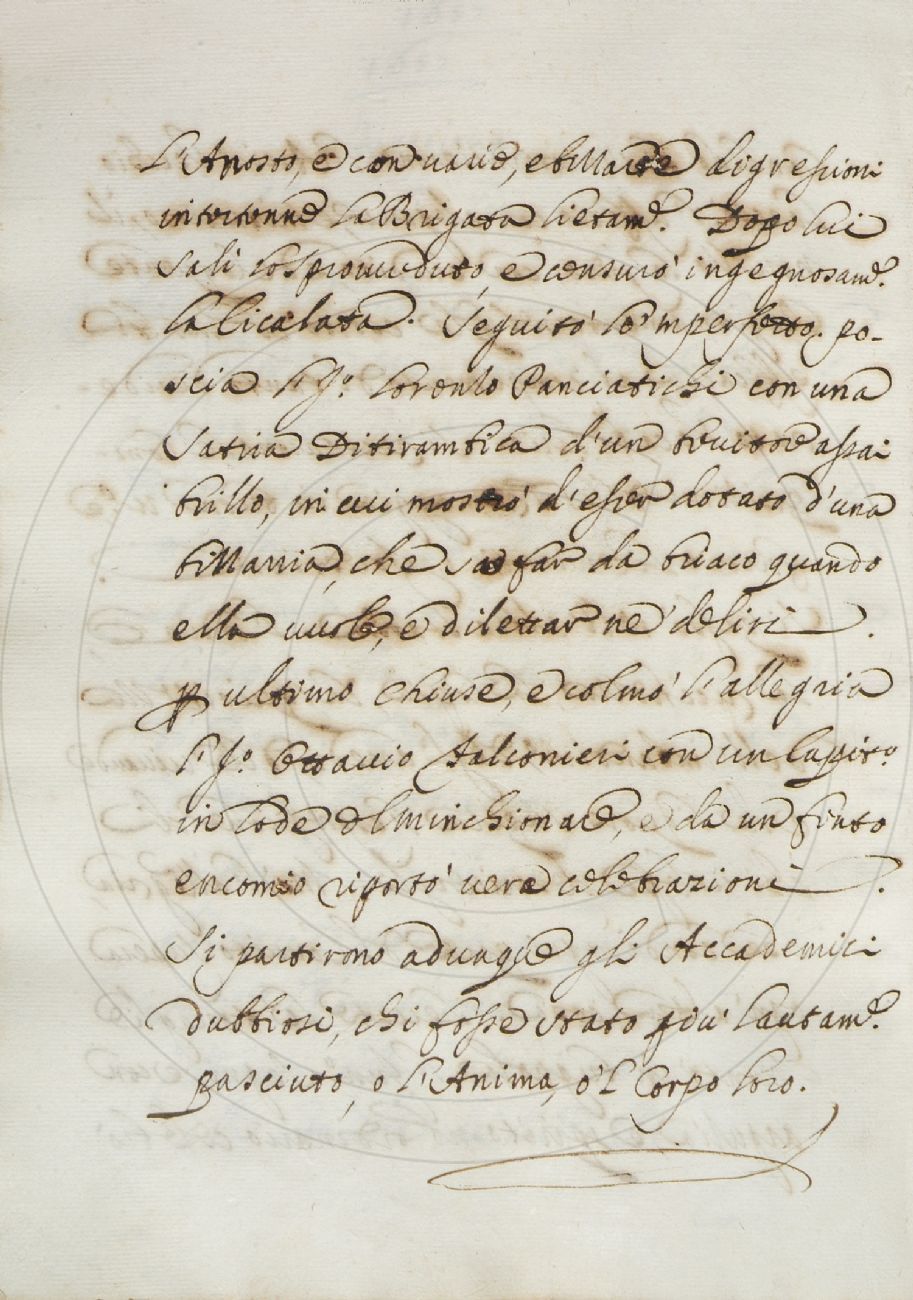 l'Arrosto, e con varie, e bizzarre digressioni
intertenne la Brigata lietam.e Dopo lui
salì lo sprovveduto, e censurò ingegnosam.e
la Cicalata. Seguitò lo 'mperfetto. po-
scia l' S.r Lorenzo Panciatichi con una
Satira Ditirambica d'un bevitore assai
brillo, in cui mostrò d'esser dotato d'una
bizzarria, che sa far da briaco quando
ella vuole, e dilettar ne' deliri.
p ultimo chiuse, e colmò l'allegria
l' S.r Ottavio Falconieri con un Capit.o
in lode del minchionare, e da un finto
encomio riportò vere celebrazioni.
Si partirono adunque gli Accademici
dubbiosi, chi fosse stato più lautam.e
pasciuto, o l'Anima, o 'l Corpo loro.